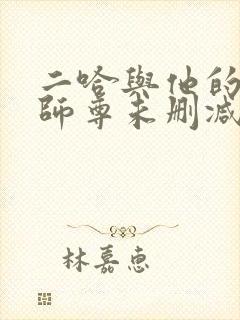 二哈與他的
師尊未刪減
林嘉惠